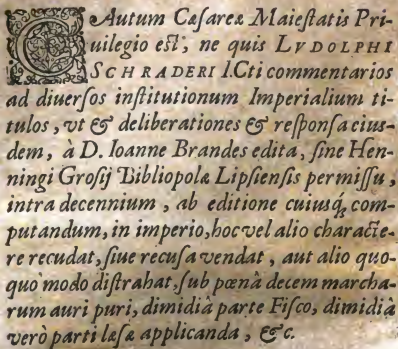 CAutum Cæsareæ Maiestatis Pri-
uilegio est, ne quis LVDOLPHI
SCHRADERI ICti commentarios
ad diuersos institutionum Imperialium ti-
tulos, vt & deliberationes & responsa eius-
dem, à D. Ioanne Brandes edita, sine Hen-
ningi Grosij Bibliopolæ Lipsiensis permissu,
intra decennium, ab editione cuiusq́, com-
putandum, in imperio, hoc vel alio characte-
re recudat, siue recusa vendat, aut alio quo-
quò modo distrahat, sub pœnâ decem marcha-
rum auri puri, dimidiâ parte Fisco, dimidiâ
verò parti læsæ applicanda, &c.